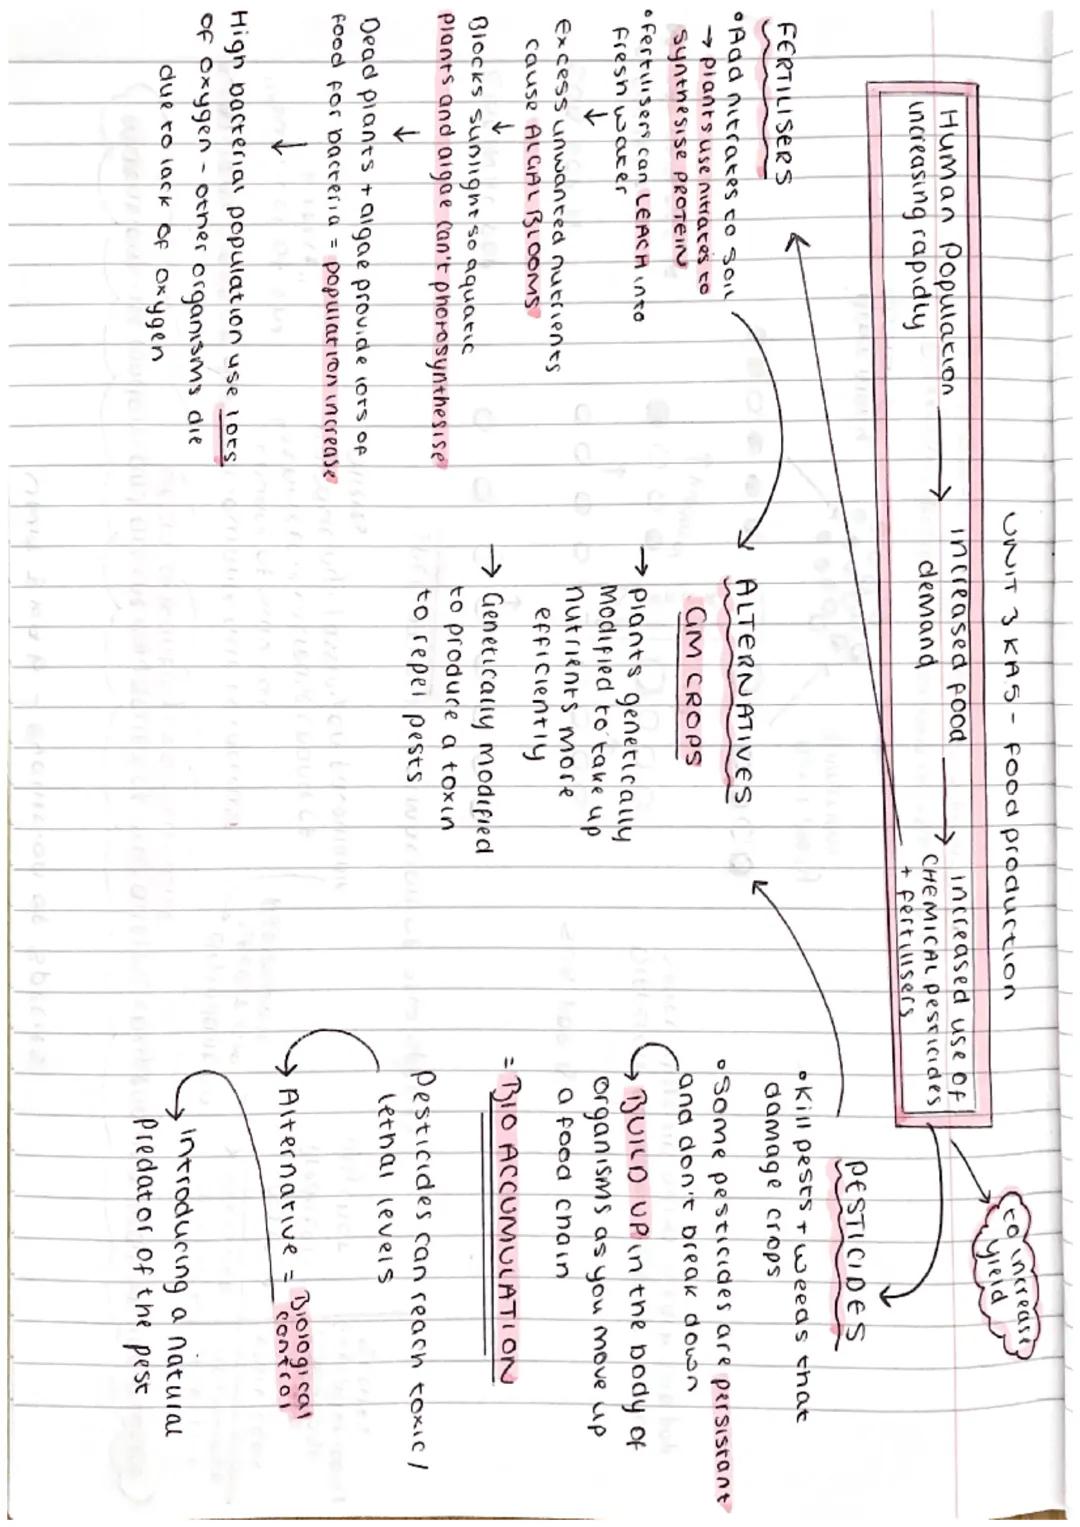 UNIT 3 KA5 - food production
Human Population
increasing rapidly
increased food
demand
increased use of
CHEMICAL pesticides
+ fertilisers
to increase
yield
FERTILISERS
• Add nitrates to soil
→ plants use nitrates to
synthesise PROTEIN
• fertilisers can LEACH into
fresh water
↓
Excess unwanted nutrients
cause ALGAL BLOOMS
↓
Blocks sunlight so aquatic
plants and algae can't photosynthesise
↓
Dead plants + algae provide lots of
food for bacteria = population increase
↓
High bacterial population use lots
of oxygen - other organisms die
due to lack of oxygen
ALTERNATIVES
GM CROPS
→ plants genetically
modified to take up
nutrients more
efficiently
→ Genetically modified
to produce a toxin
to repel pests
PESTICIDES
• Kill pests + weeds that
damage crops
• Some pesticides are persistant
and don't break down
BUILD UP in the body of
organisms as you move up
a food chain
= BIO ACCUMULATION
Pesticides can reach toxic /
lethal levels
Alternative = Biological
control
introducing a natural
predator of the pest